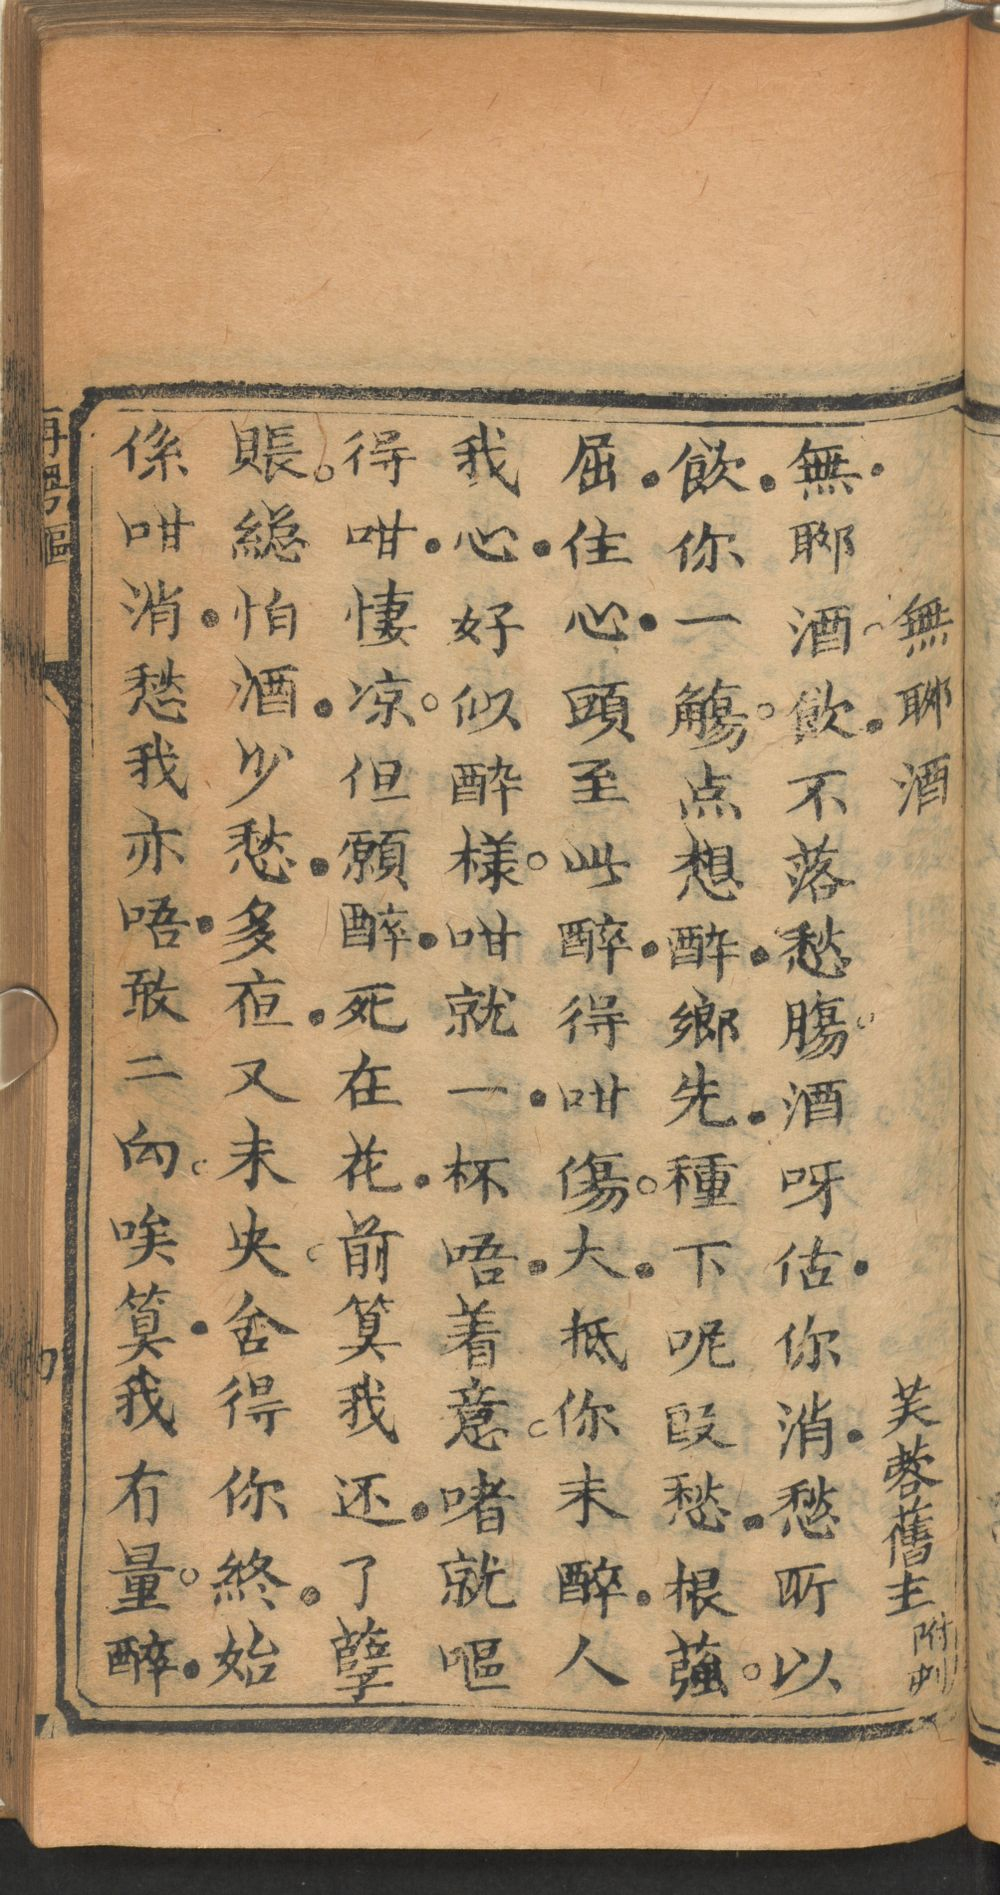 無聊酒　芙蓉舊主附刊
無聊酒飲不落愁腸酒呀估你消愁所以
飲你一觴点想醉鄉先種下呢段愁根蕴
屈住心頭至此醉得咁傷大抵你未醉人
我心好似醉樣咁就一杯唔着意啫就嘔
得咁悽凉但願醉死在花前算我还了孽
賬緫怕酒少愁多夜又未央舍得你終始
係咁消愁我亦唔敢二向唉算我冇量醉
再粵謳